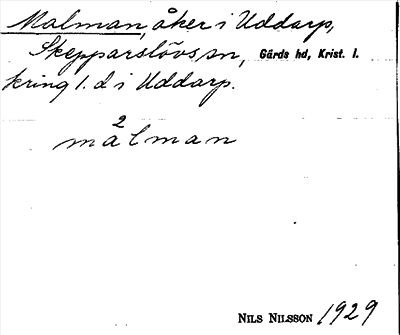 Malman, åker i Uddarp,
Skepparslövs sn, Gärds hd, Krist. l.
kring 1. d i Uddarp.
2
målman
NILS NILSSON 1929